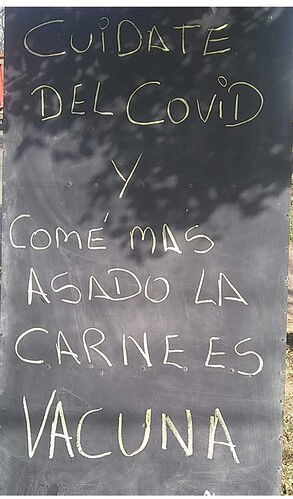 CUIDATE
DEL COViD
Y
COMÉ MAS
ASADO LA
CARNE ES
VACUNA